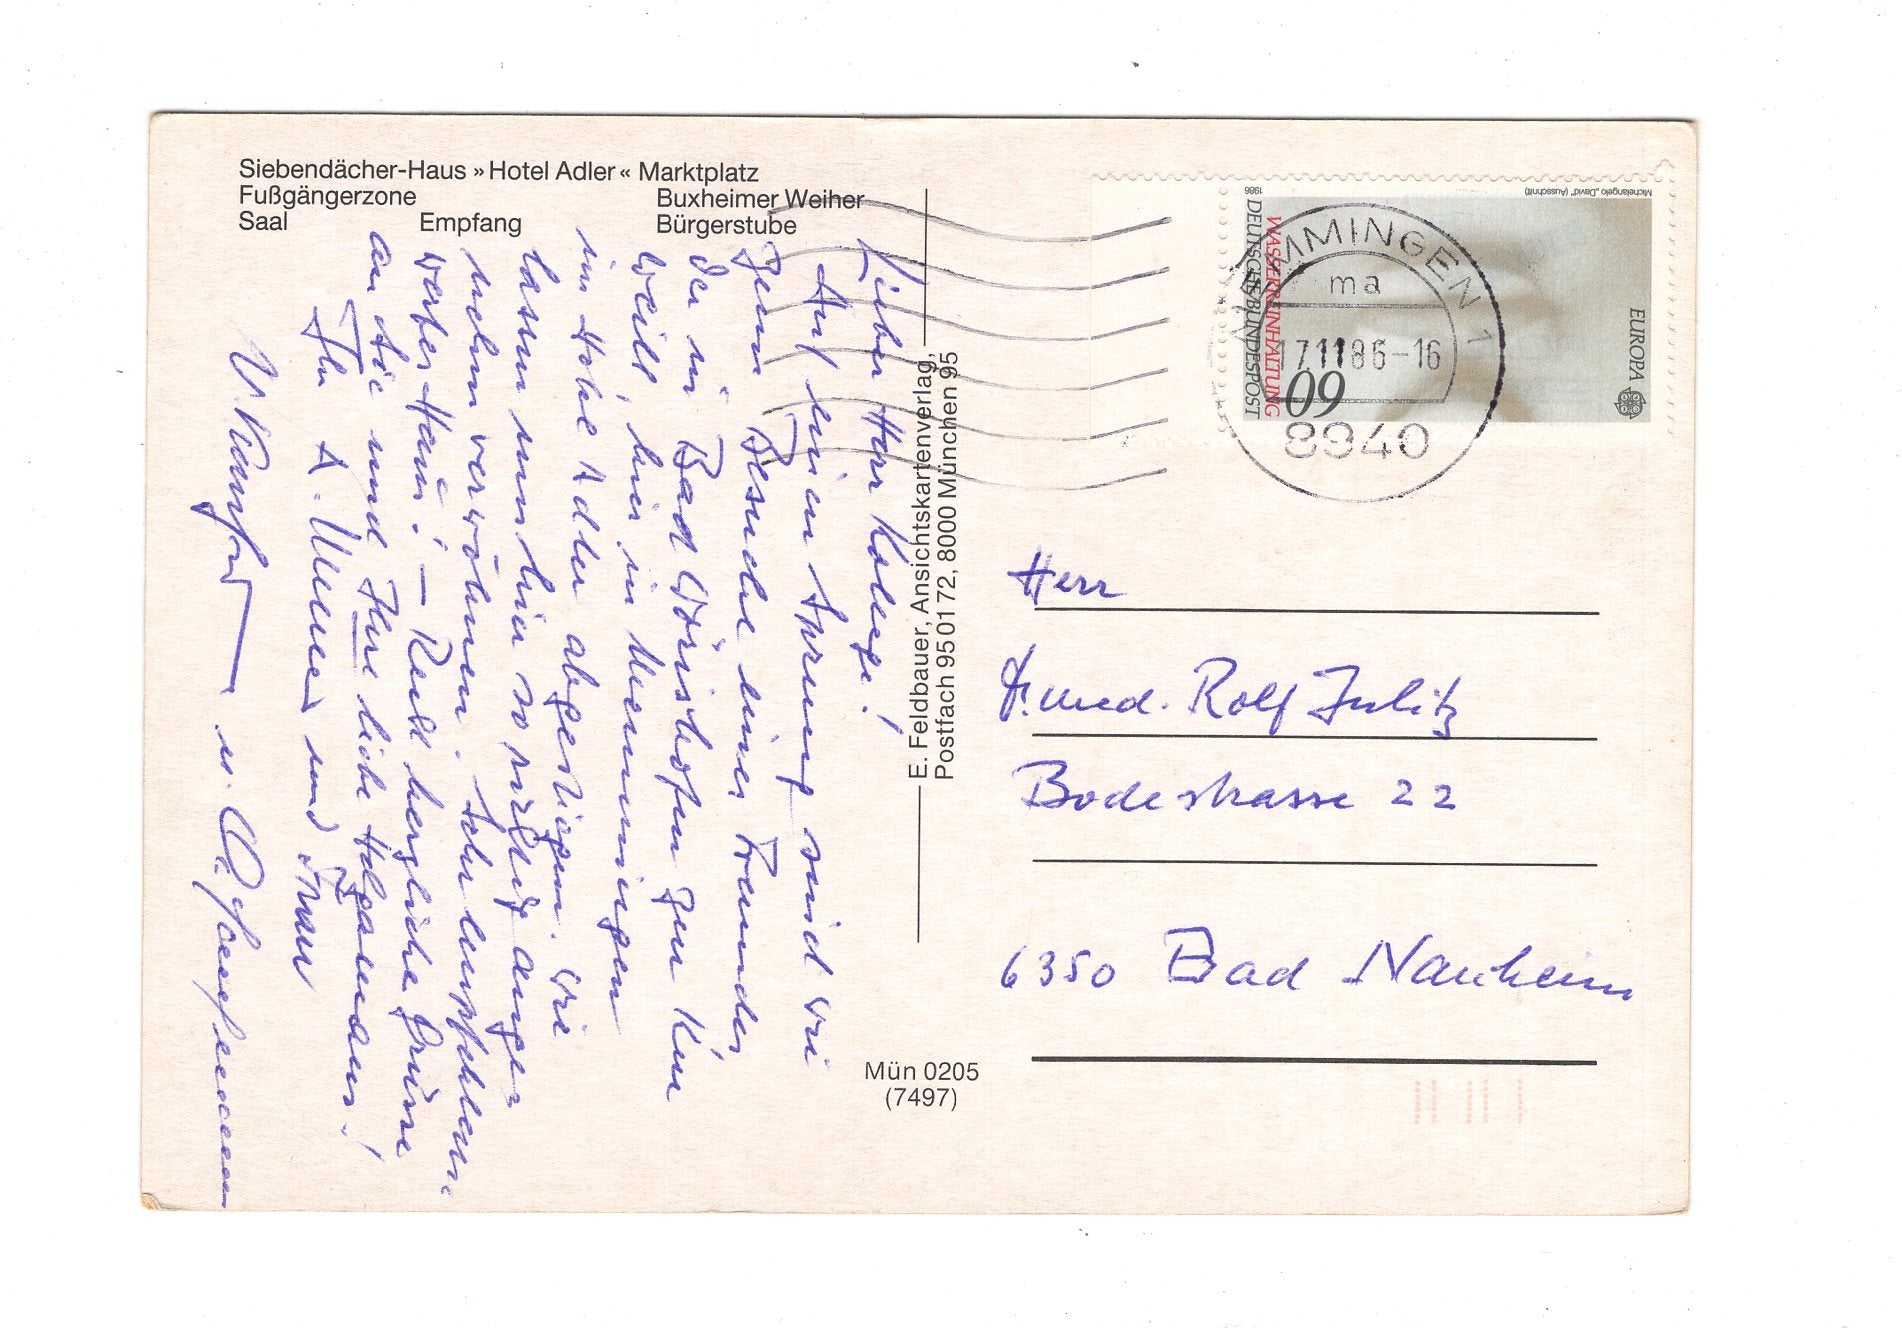 Siebendächer-Haus »Hotel Adler« Marktplatz
Fußgängerzone Buxheimer Weiher
Saal Empfang Bürgerstube
Lieber Herr Kollege!
Auf einen Sprung sind wir
zum Besuche eines Freundes
der in Bad Wörishofen zur Kur
weilt, hier in Memmingen
im Hotel Adler abgestiegen. Wir
lassen uns hier so richtig ange-
nehm verwöhnen. Sehr empfehlens-
wertes Haus! – Recht herzliche Grüsse
an Sie und Ihre liebe
Ihr und Frau
E. Feldbauer, Ansichtskartenverlag,
Postfach 95 01 72, 8000 München 95
Mün 0205
(7497)
Michelangelo „David“ (Ausschnitt)
1986
DEUTSCHE BUNDESPOST
WASSERREINHALTUNG
60
EUROPA
MEMMINGEN 1
ma
17.11.86-16
8940
Herr
Dr. med. Rolf Julitz
Bodestrasse 22
6350 Bad Nauheim